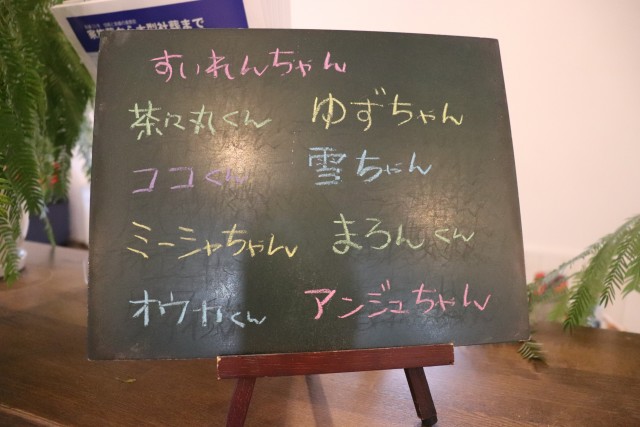 すいれんちゃん
茶々丸くん ゆずちゃん
ココくん 雪ちゃん
ミーシャちゃん まろんくん
オウガくん アンジュちゃん